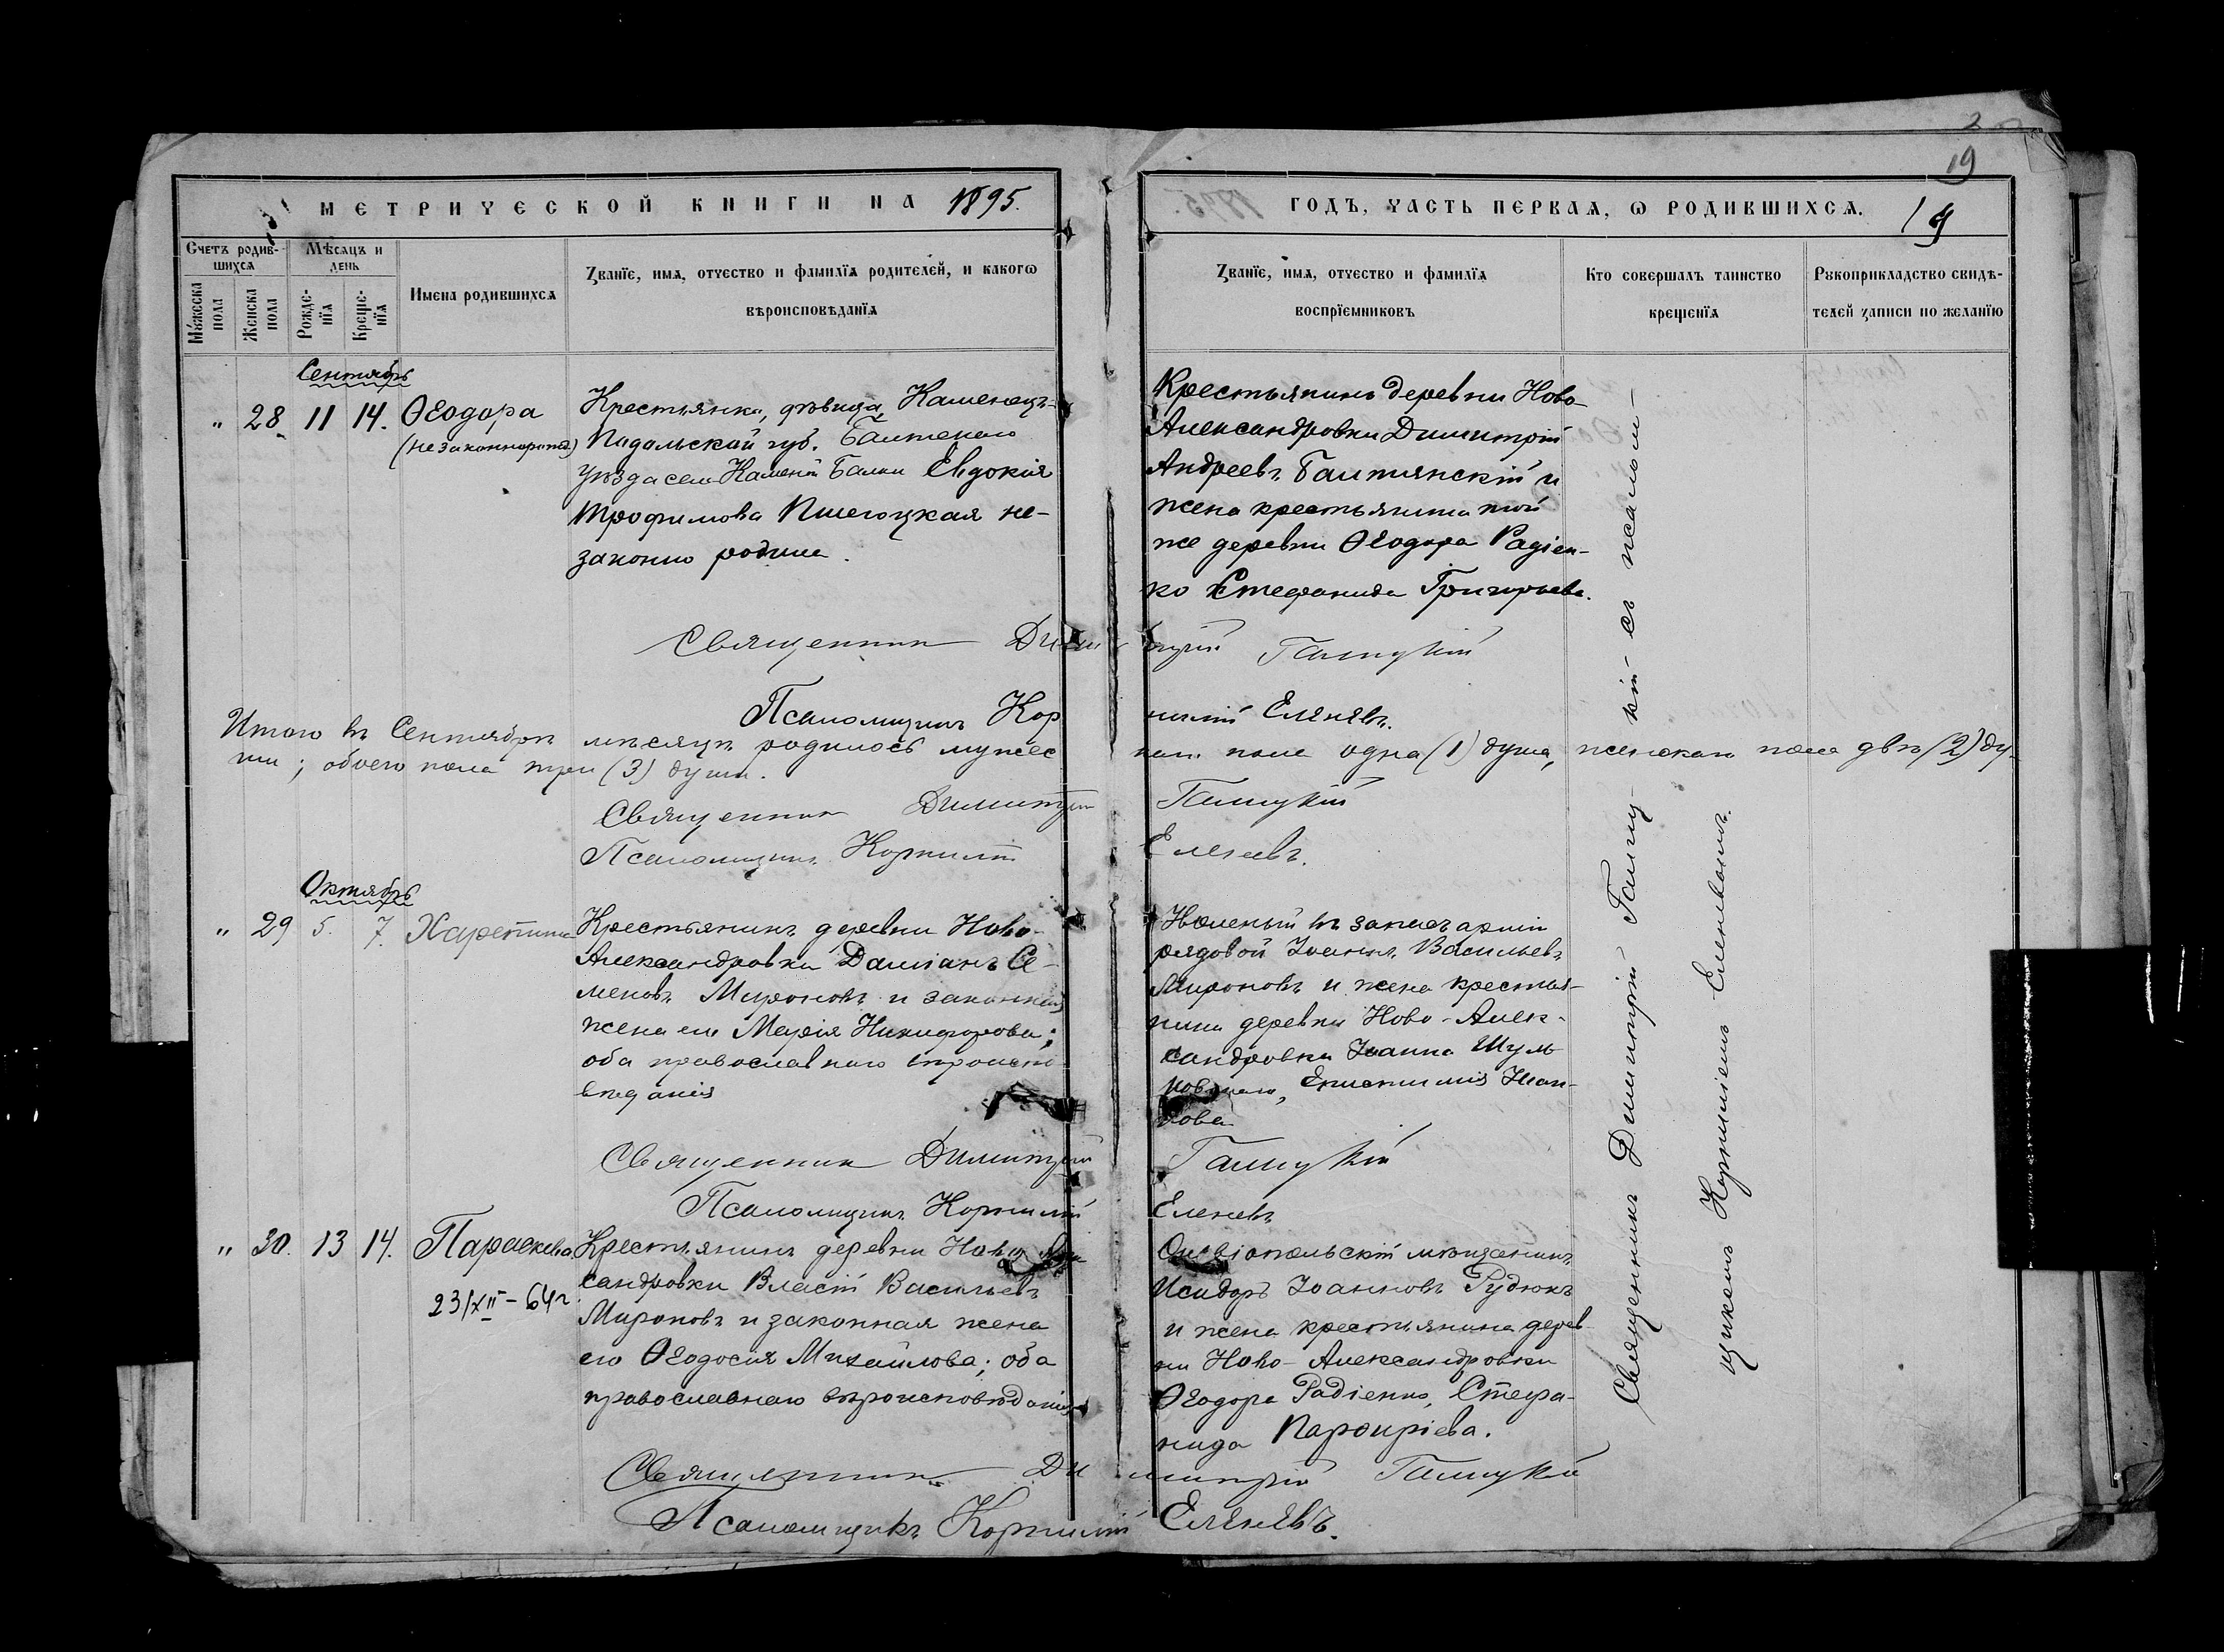 19
МЕТРИЧЕСКОЙ КНИГИ НА 1895.
ГОДЪ, ЧАСТЬ ПЕРВАЯ, Ѡ РОДИВШИХСЯ. 19
Счетъ родившихся
Мѣсяцъ и день
Мужеска пола
Женска пола
Рожденїя
Крещенїя
Имена родившихся
Званїе, имя, отчество и фамилїя родителей, и какогѡ
вѣроисповѣданїя
Званїе, имя, отчество и фамилїя
воспрїемниковъ
Кто совершалъ таинство
крещенїя
Рукоприкладство свидѣ-
телей записи по желанїю
Сентябрь
" 28 11 14. Ѳеодора
(незаконнорожд.)
Крестьянка, дѣвица, Каменецъ-
Подольской губ. Балтскаго
уѣзда села Каменой Балки Евдокія
Трофимова не-
законно родила.
Крестьянинъ деревни Ново-
Александровки Димитрій
Андреевъ Балтянскій и
жена крестьянина той
же деревни Ѳеодора Радіен-
ко Стефанида Григорьева.
Священникъ Димитрій
Псаломщикъ Корнилій Еленевъ.
Итого въ Сентябрѣ мѣсяцѣ родилось мужескаго пола одна (1) душа, женскаго пола двѣ (2) ду-
ши; обоего пола три (3) души.
Священникъ Димитрій
Псаломщикъ Корнилій Еленевъ.
Октябрь
" 29 5. 7. Харитина
Крестьянинъ деревни Ново-
Александровки Даміанъ Се-
меновъ Мироновъ и законная
жена его Марія Никифорова;
оба православнаго вѣроиспо-
вѣданія
въ запасъ арміи
рядовой Іоаннъ Васильевъ
Мироновъ и жена крестья-
нина деревни Ново-Алек-
сандровки Іоанна
Епистимія Іоан-
нова
Священникъ Димитрій
Псаломщикъ Корнилій Еленевъ
" 30. 13 14. Параскева
23/XII-64г.
Крестьянинъ деревни Ново-Алек-
сандровки Власій Васильевъ
Мироновъ и законная жена
его Ѳеодосія Михайлова; оба
православнаго вѣроисповѣданія
Ольвіопольскій мѣщанинъ
Исидоръ Іоанновъ Рудюкъ
и жена крестьянина дерев-
ни Ново-Александровки
Ѳеодора Радіенко, Стефа-
нида Парфиріева.
Священникъ Димитрій
Псаломщикъ Корнилій Еленевъ.
Священникъ Димитрій съ псалом-
щикомъ Корниліемъ Еленевымъ.